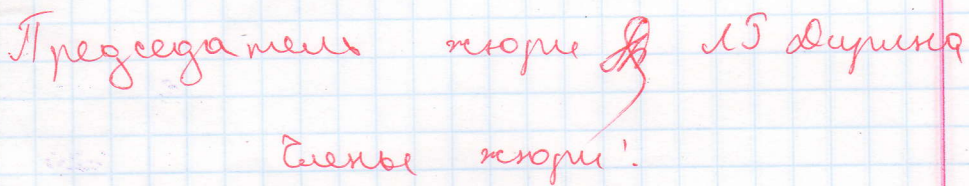 Председатель жюри ЛГ Дирина
Члены жюри: